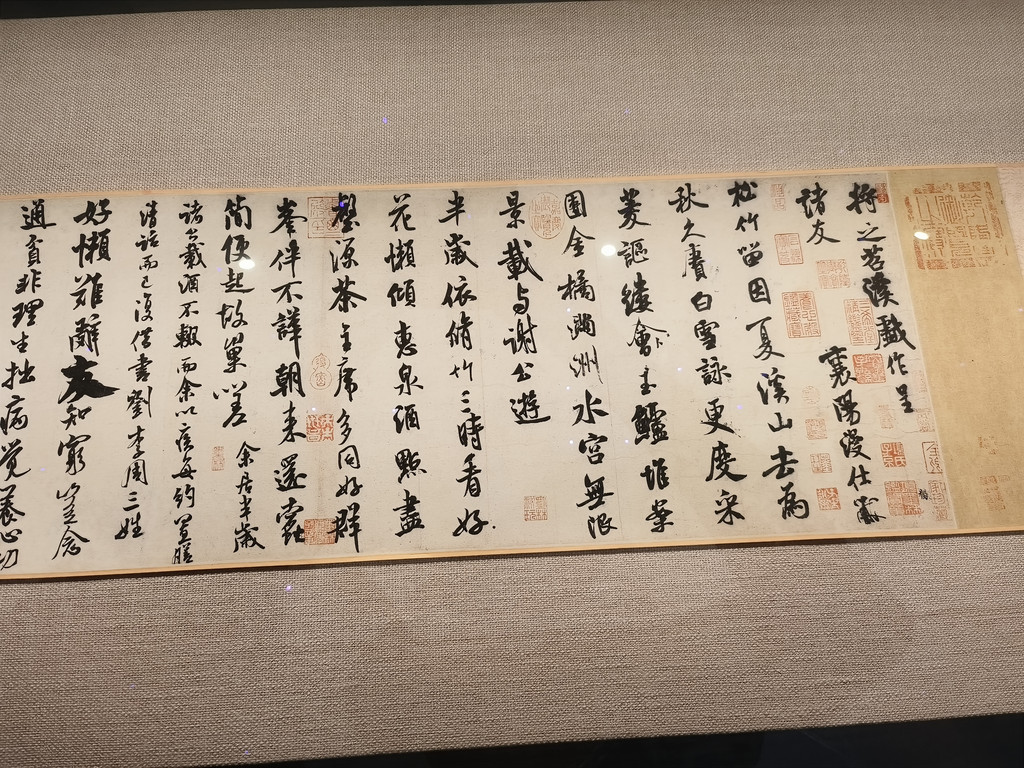 將之苕溪戲作呈
諸友
襄陽漫仕黻
松竹留因夏溪山去為
秋久賡白雪詠更度采
菱謳縷會玉鱸堆案
團金橘滿洲水宮無限
景載与謝公遊
半歲依脩竹三時看好
花懶傾惠泉酒點盡
壑源茶主席多同好群
峯伴不譁朝來還蠹
簡便起故巢嗟
余居半歲
諸公載酒不輟而余以疾每約置膳
清話而已復借書劉李周三姓
好懶難辭友知窮豈念
通貧非理生拙病覺養心功